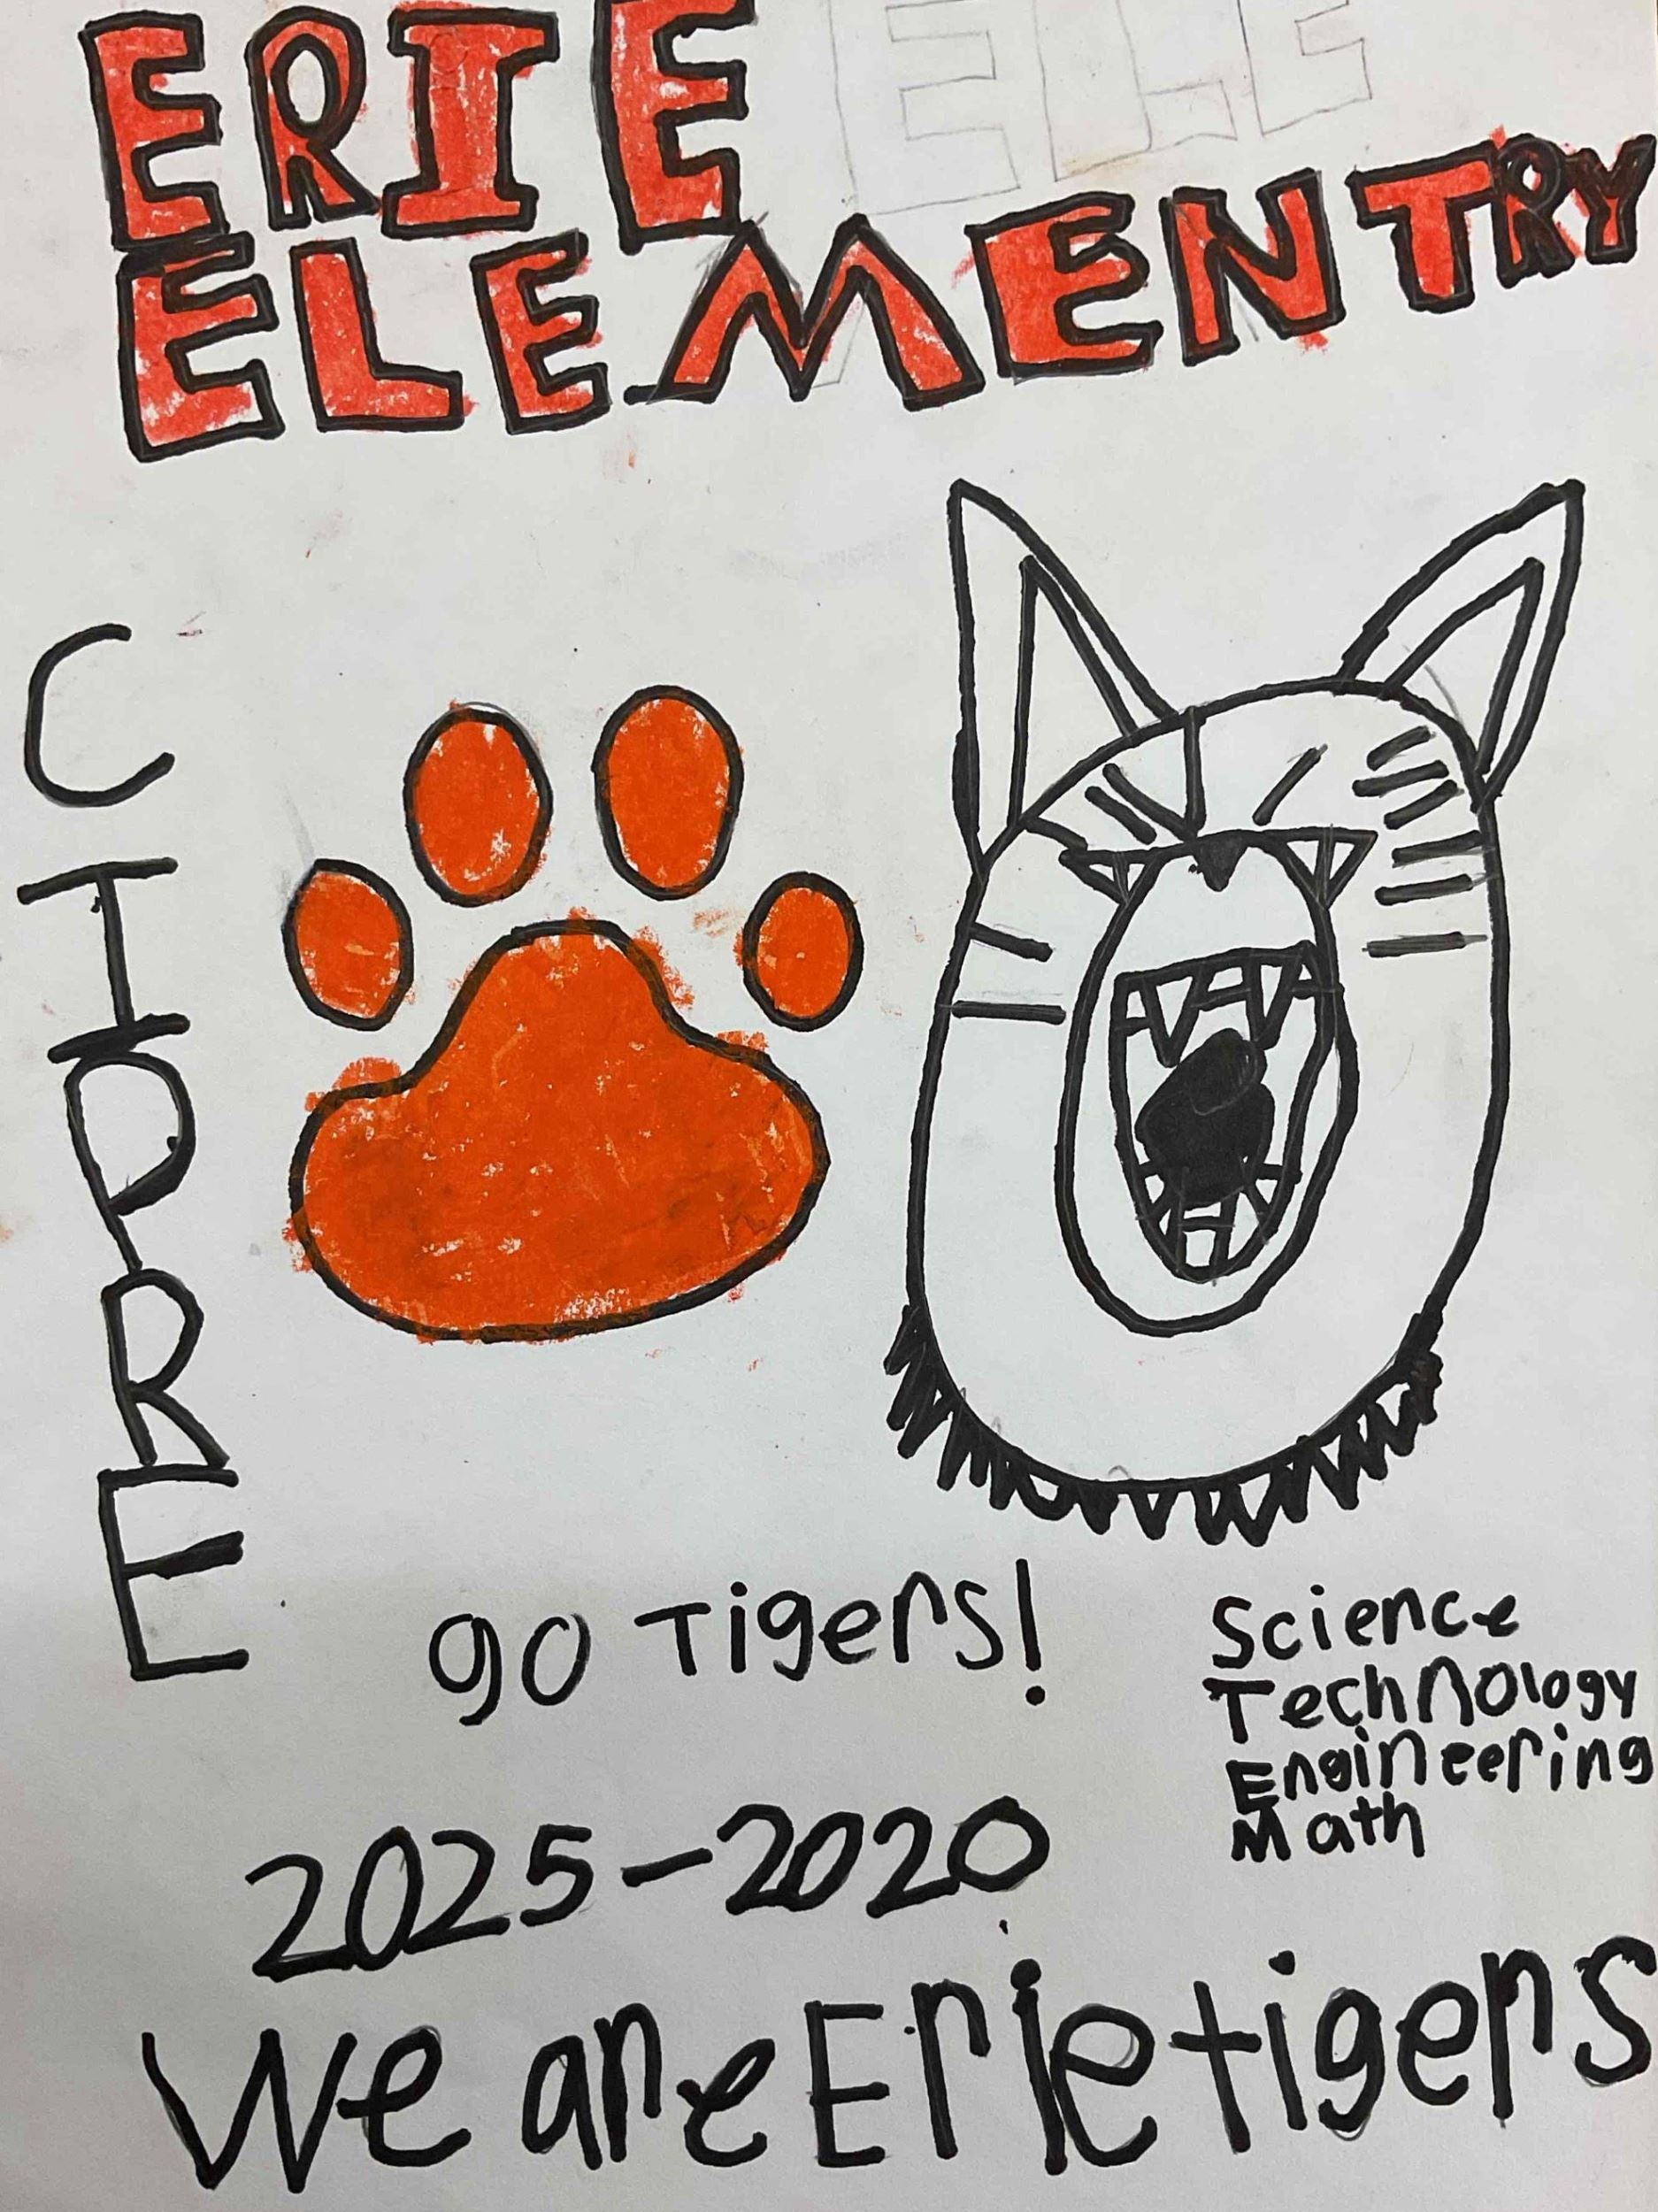 ERIE ELE
ELEMENTRY
CIPRE
go Tigers!
Science
Technology
Engineering
Math
2025-2020
We are Erie tigers